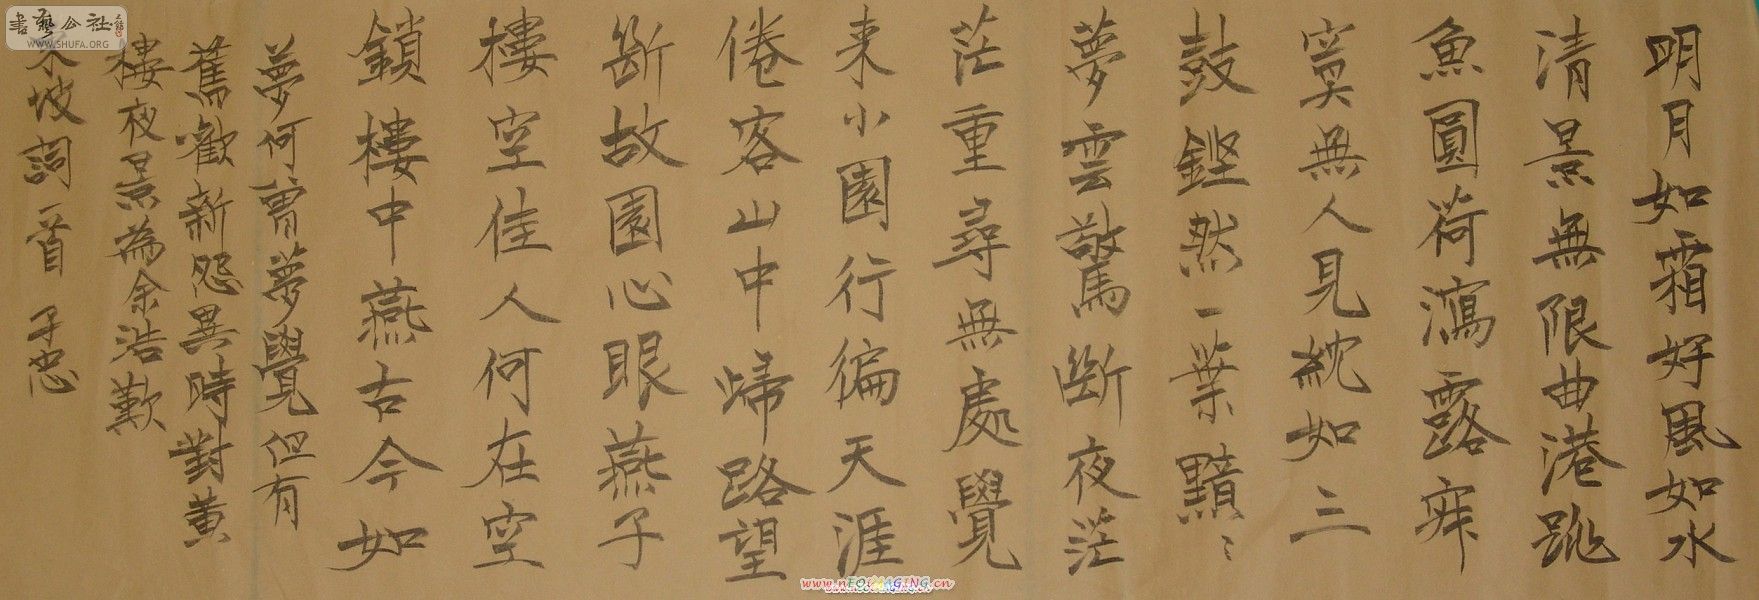 明月如霜好風如水
清景無限曲港跳
魚圓荷瀉露寂
寞無人見紞如三
鼓鏗然一葉黯〻
夢雲驚斷夜茫
茫重尋無處覺
来小園行徧天涯
倦客山中歸路望
斷故園心眼燕子
樓空佳人何在空
鎖樓中燕古今如
夢何曾夢覺但有
舊歡新怨異時對黄
樓夜景為余浩歎
東坡詞一首 子忠
書藝公社
WWW.SHUFA.ORG
www.nEOiMAGiNG.cn